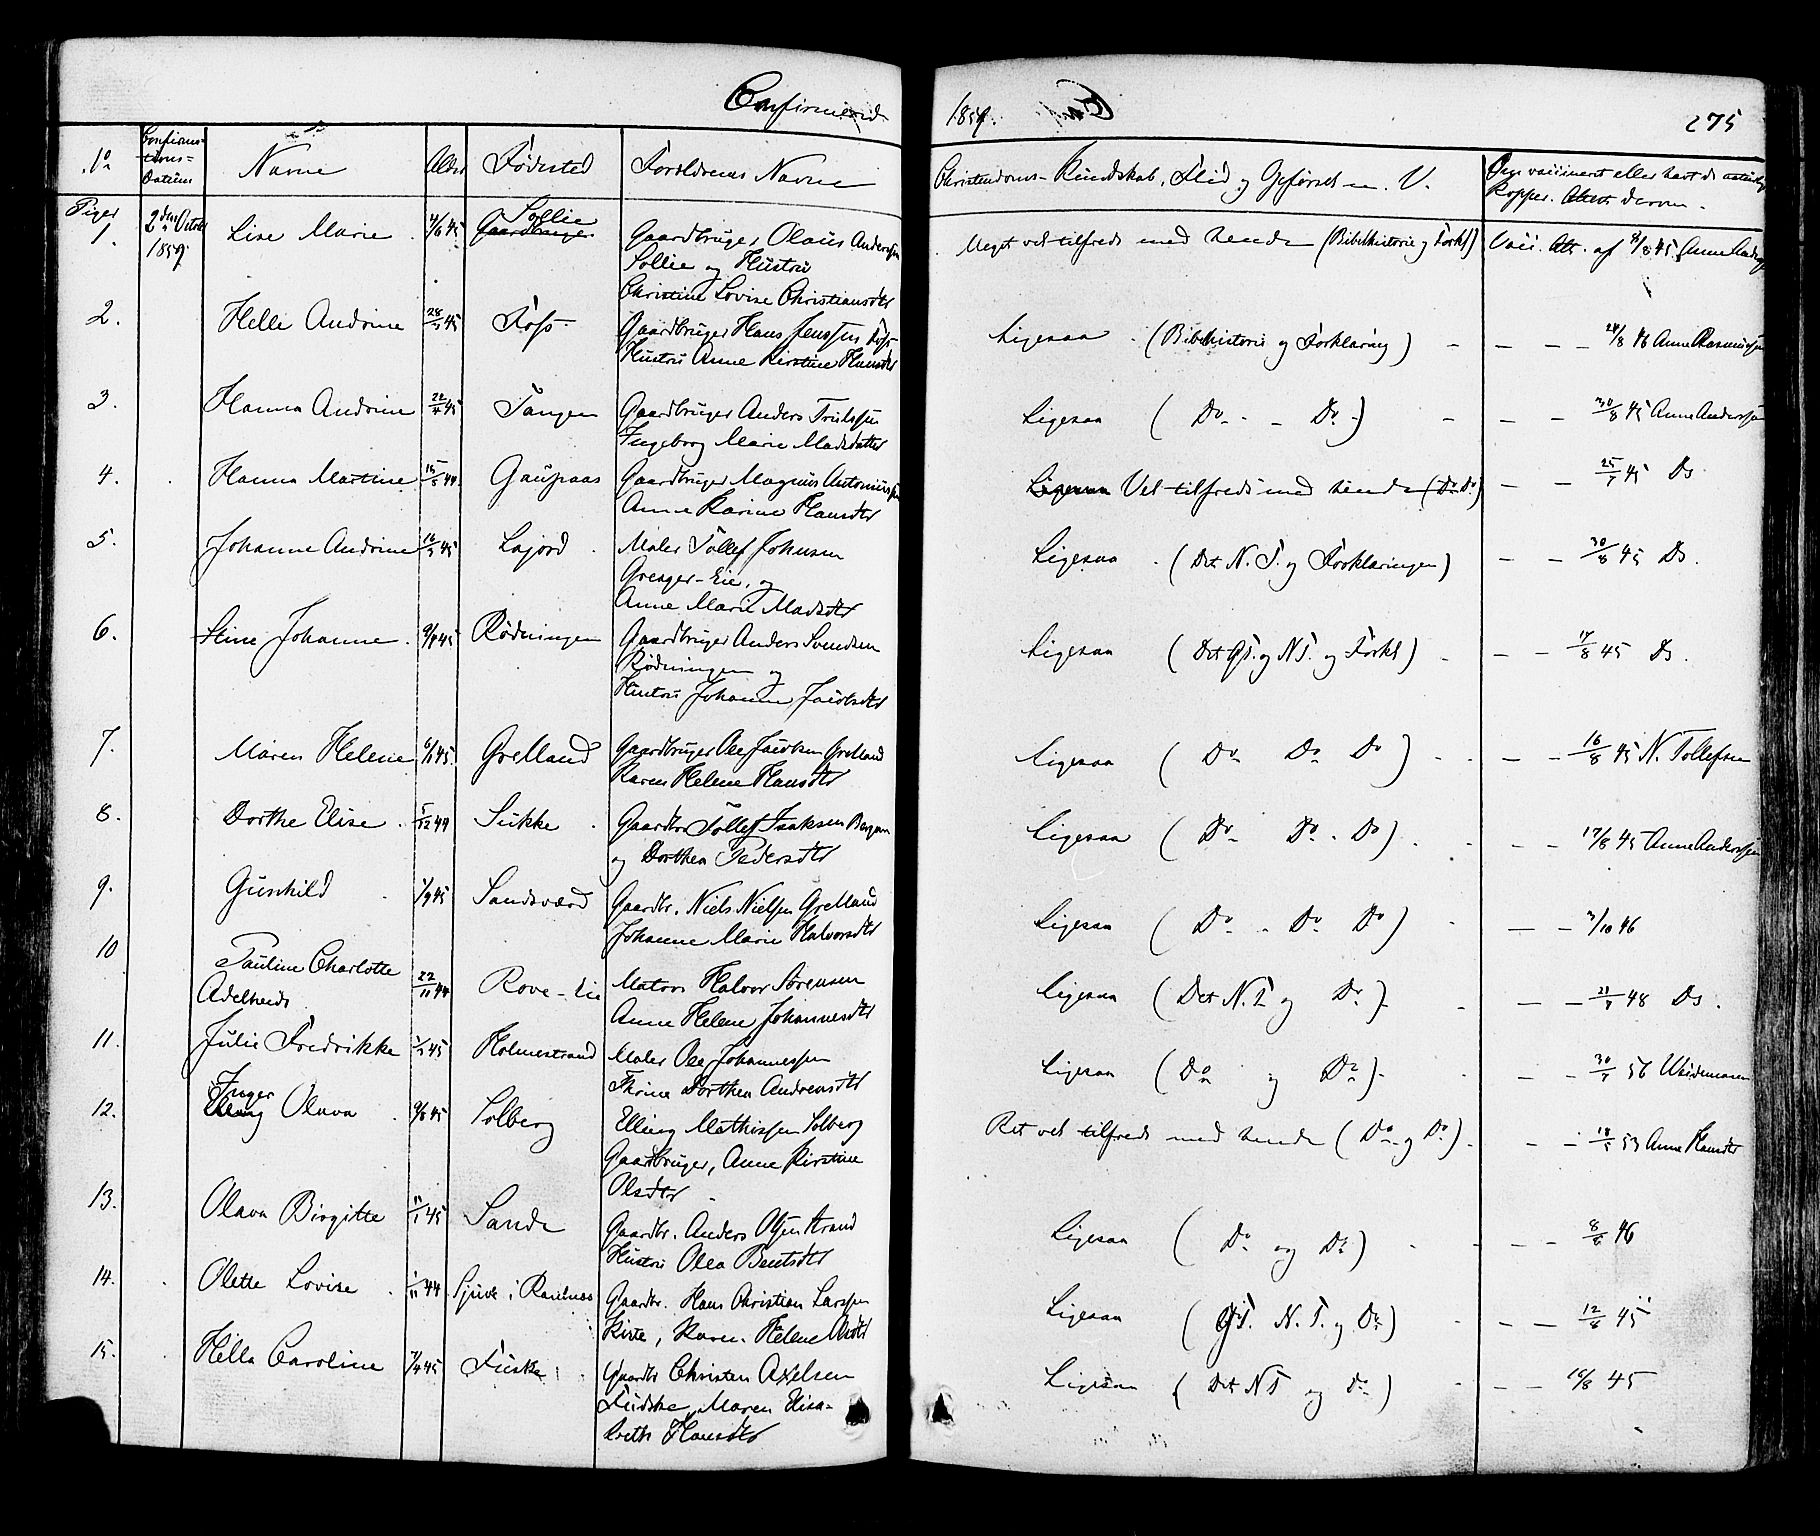 Confirmerede 1859.
275
No
Confirmations-Datum
Navne
Alder
Fødested
Forældrenes Navne
Christendoms-Kundskab, Flid og Forhold m. V.
Piger
1. 2den Octobr 1859 Lise Marie 4/6 45 Sollie
Gaardbruger Olaus Andersen
Sollie og Hustru
Christine Lovise Christiansdtr
Meget vel tilfreds med hende (Bibelhistorie og Forkl) Vacc. Att. af 8/8 45 Anne
2. Helle Andrine 28/1 45 Foss
Gaardbruger Hans Jenssen Foss
Hustru Anne Kirstine Hansdtr
Ligesaa (Bibelhistorie og Forklaring) - - - 24/8 46 Anne Rasmussen
3. Hanna Andrine 22/4 45 Tangen
Gaardbruger Anders
Ingeborg Marie Madsdatter
Ligesaa (Do - Do) - - - 30/8 45 Anne Anderssen
4. Hanna Martine 15/5 44 Gaupaas
Gaardbruger Magnus Antoniussen
Anne Karine Hansdtr
Ligesaa Vel tilfreds med hende (Do Do) - - 25/7 45 Do
5. Johanne Andrine 16/3 45 Lajord
Maler Tollef Johnsen
Grenger-Eie, og
Anne Marie Madsdtr
Ligesaa (Det N. T. og Forklaringen) - - 30/8 45 Do.
6. Stine Johanne 9/4 45 Rødningen
Gaardbruger Anders Svendsen
Rødningen og
Hustru Johanne Jacobsdtr
Ligesaa (Det GT. og NT. og Forkl) - - - 17/8 45 Do.
7. Maren Helene 6/1 45 Grelland
Gaardbruger Ole Jacobsen Grelland
Karen Helene Hansdtr
Ligesaa (Do Do Do) - - - 16/8 45 N. Tollefsen
8. Dorthe Elise 5/12 44 Sukke
Gaardbr Tollef Isaksen
og Dorthea Pedersdtr
Ligesaa (Do Do - Do) - - 17/8 45 Anne Anderssen
9. Gunhild 1/9 45 Sandsværd
Gaardbr. Niels Nielsen Grelland
Johanne Marie Halvorsdtr
Ligesaa (Do - Do Do) - - 3/10 46
10 Pauline Charlotte
Adelheids 22/11 44 Rove-Eie
Matros Halvor Sørensen
Anne Helene Johannesdtr
Ligesaa (Det N. T og Do) - - 21/7 48 Do.
11. Julie Fredrikke 1/2 45 Holmestrand
Maler Ole Johannessen
Thrine Dorthea Andreasdtr
Ligesaa (Do og Do) - - 30/7 56 Weidemann
12. Inger Olava 9/6 45 Solberg
Elling Mathissen Solberg
Gaardbruger, Anne Kirstine
Olsdtr
Ret vel tilfreds med hende (Do og Do) - - 18/5 53 Anne Hansdtr
13. Olava Birgitte 11/1 45 Sande
Gaardbr. Anders Olsen Strand
Hustru Olea Bentsdtr
Ligesaa (Do og Do) - - - 8/6 46
14. Olette Lovise 1/11 44 Sjue i Ramnæs
Gaardbr. Hans Christian Larssen
Kirte, Karen Helene
Ligesaa (GT. N. T. og Do) - - 12/8 45
15. Hella Caroline 7/4 45 Fuske
Gaardbr Christen Axelsen
Fudske, Maren Elisa-
beth Hansdtr
Ligesaa (Det N T og Do) - - - 16/8 45